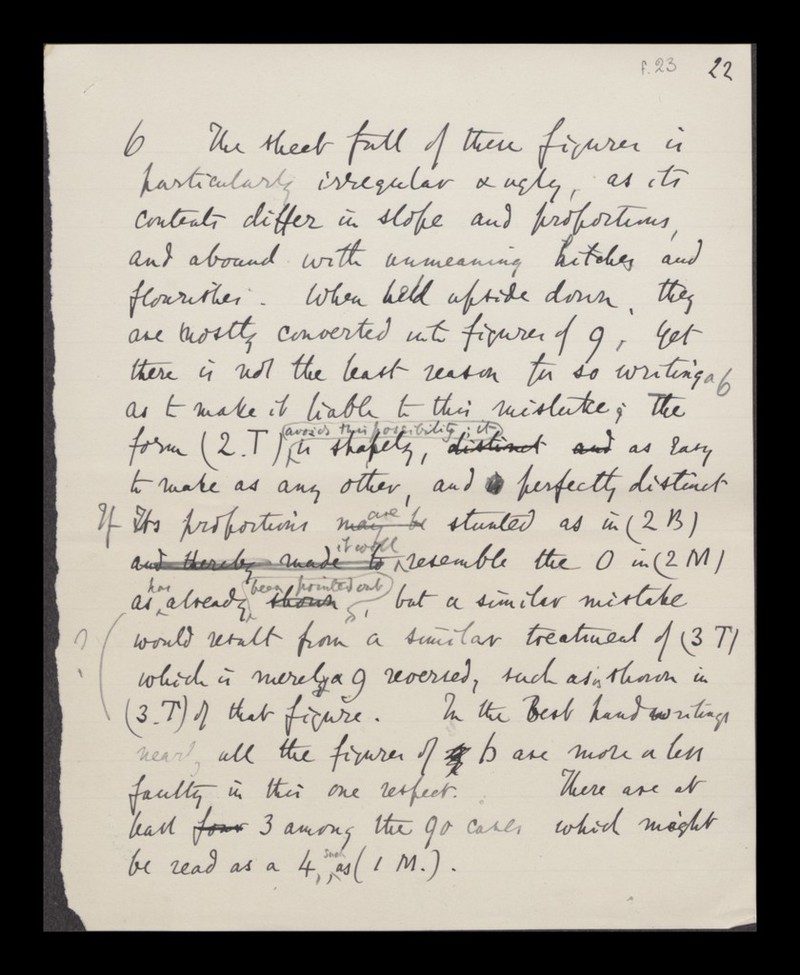 f. 23 22
6 The sheet full of these figures is
particularly irregular & ugly, as its
contents differ in slope and proportions,
and abound with unmeaning hitches and
flourishes. When held upside down, they
are mostly converted into figures of 9, yet
there is not the least reason for so writing a 6
as to make it liable to this mistake; The
avoids this possibility; it
form (2.T) is shapely, distinct and as easy
to make as any other, and is perfectly distinct
are
If Its proportions may be stunted as in (2 B)
it will
and thereby made to resemble the 0 in (2 M)
has been pointed out
as already shown, but a similar mistake
? would result from a similar treatment of (3 T)
which is merely a 9 reversed, such as is shown in
(3.T) of that figure. In the best handwritings
nearly all the figures of 6 are more or less
faulty in this one respect. There are at
least four 3 among the 90 cases which might
such
be read as a 4, as (1 M.).